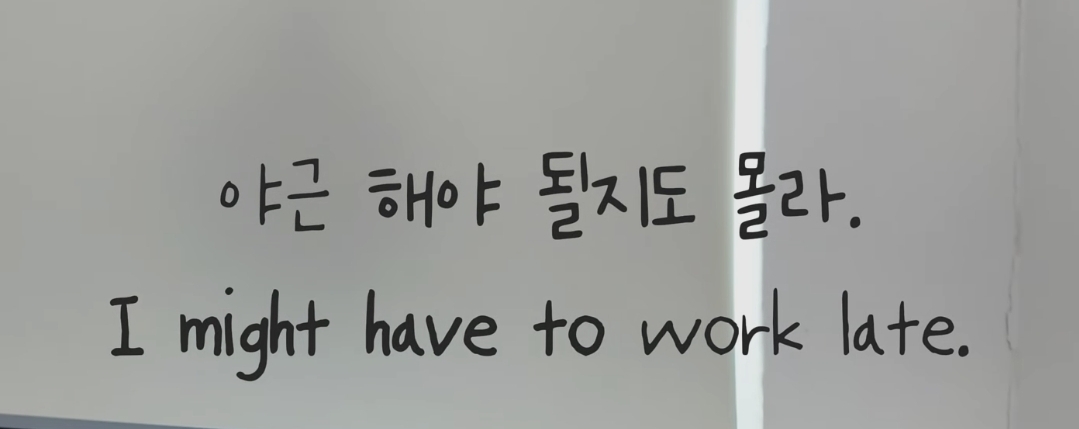 야근 해야 될지도 몰라.
I might have to work late.